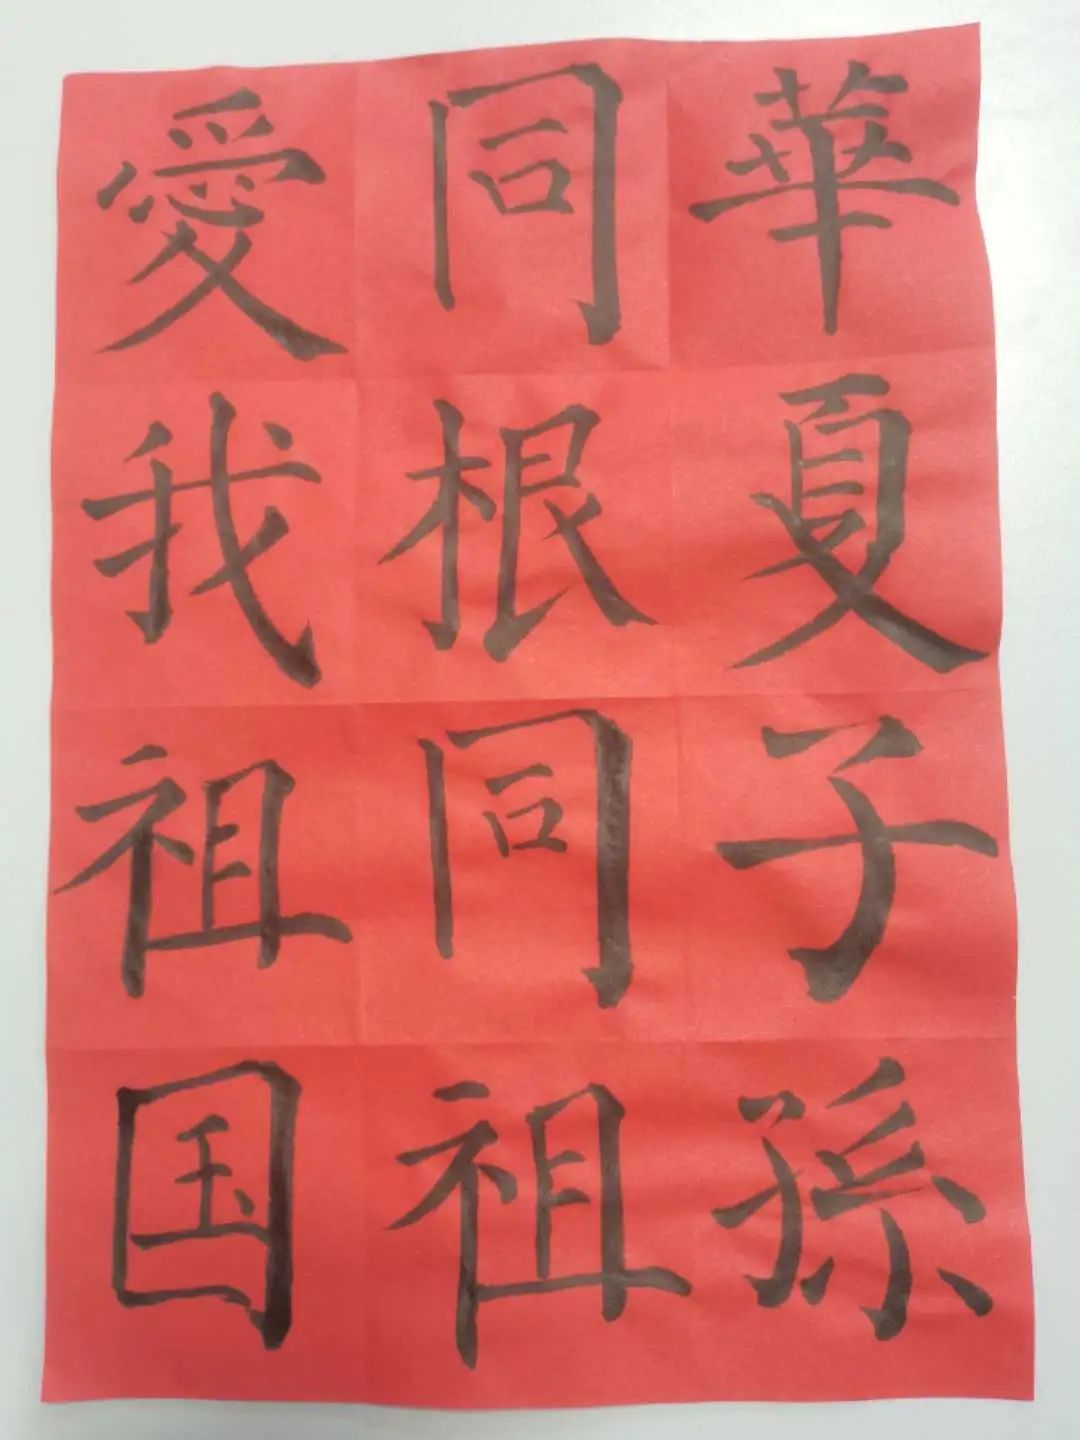 華夏子孫
同根同祖
愛我祖国